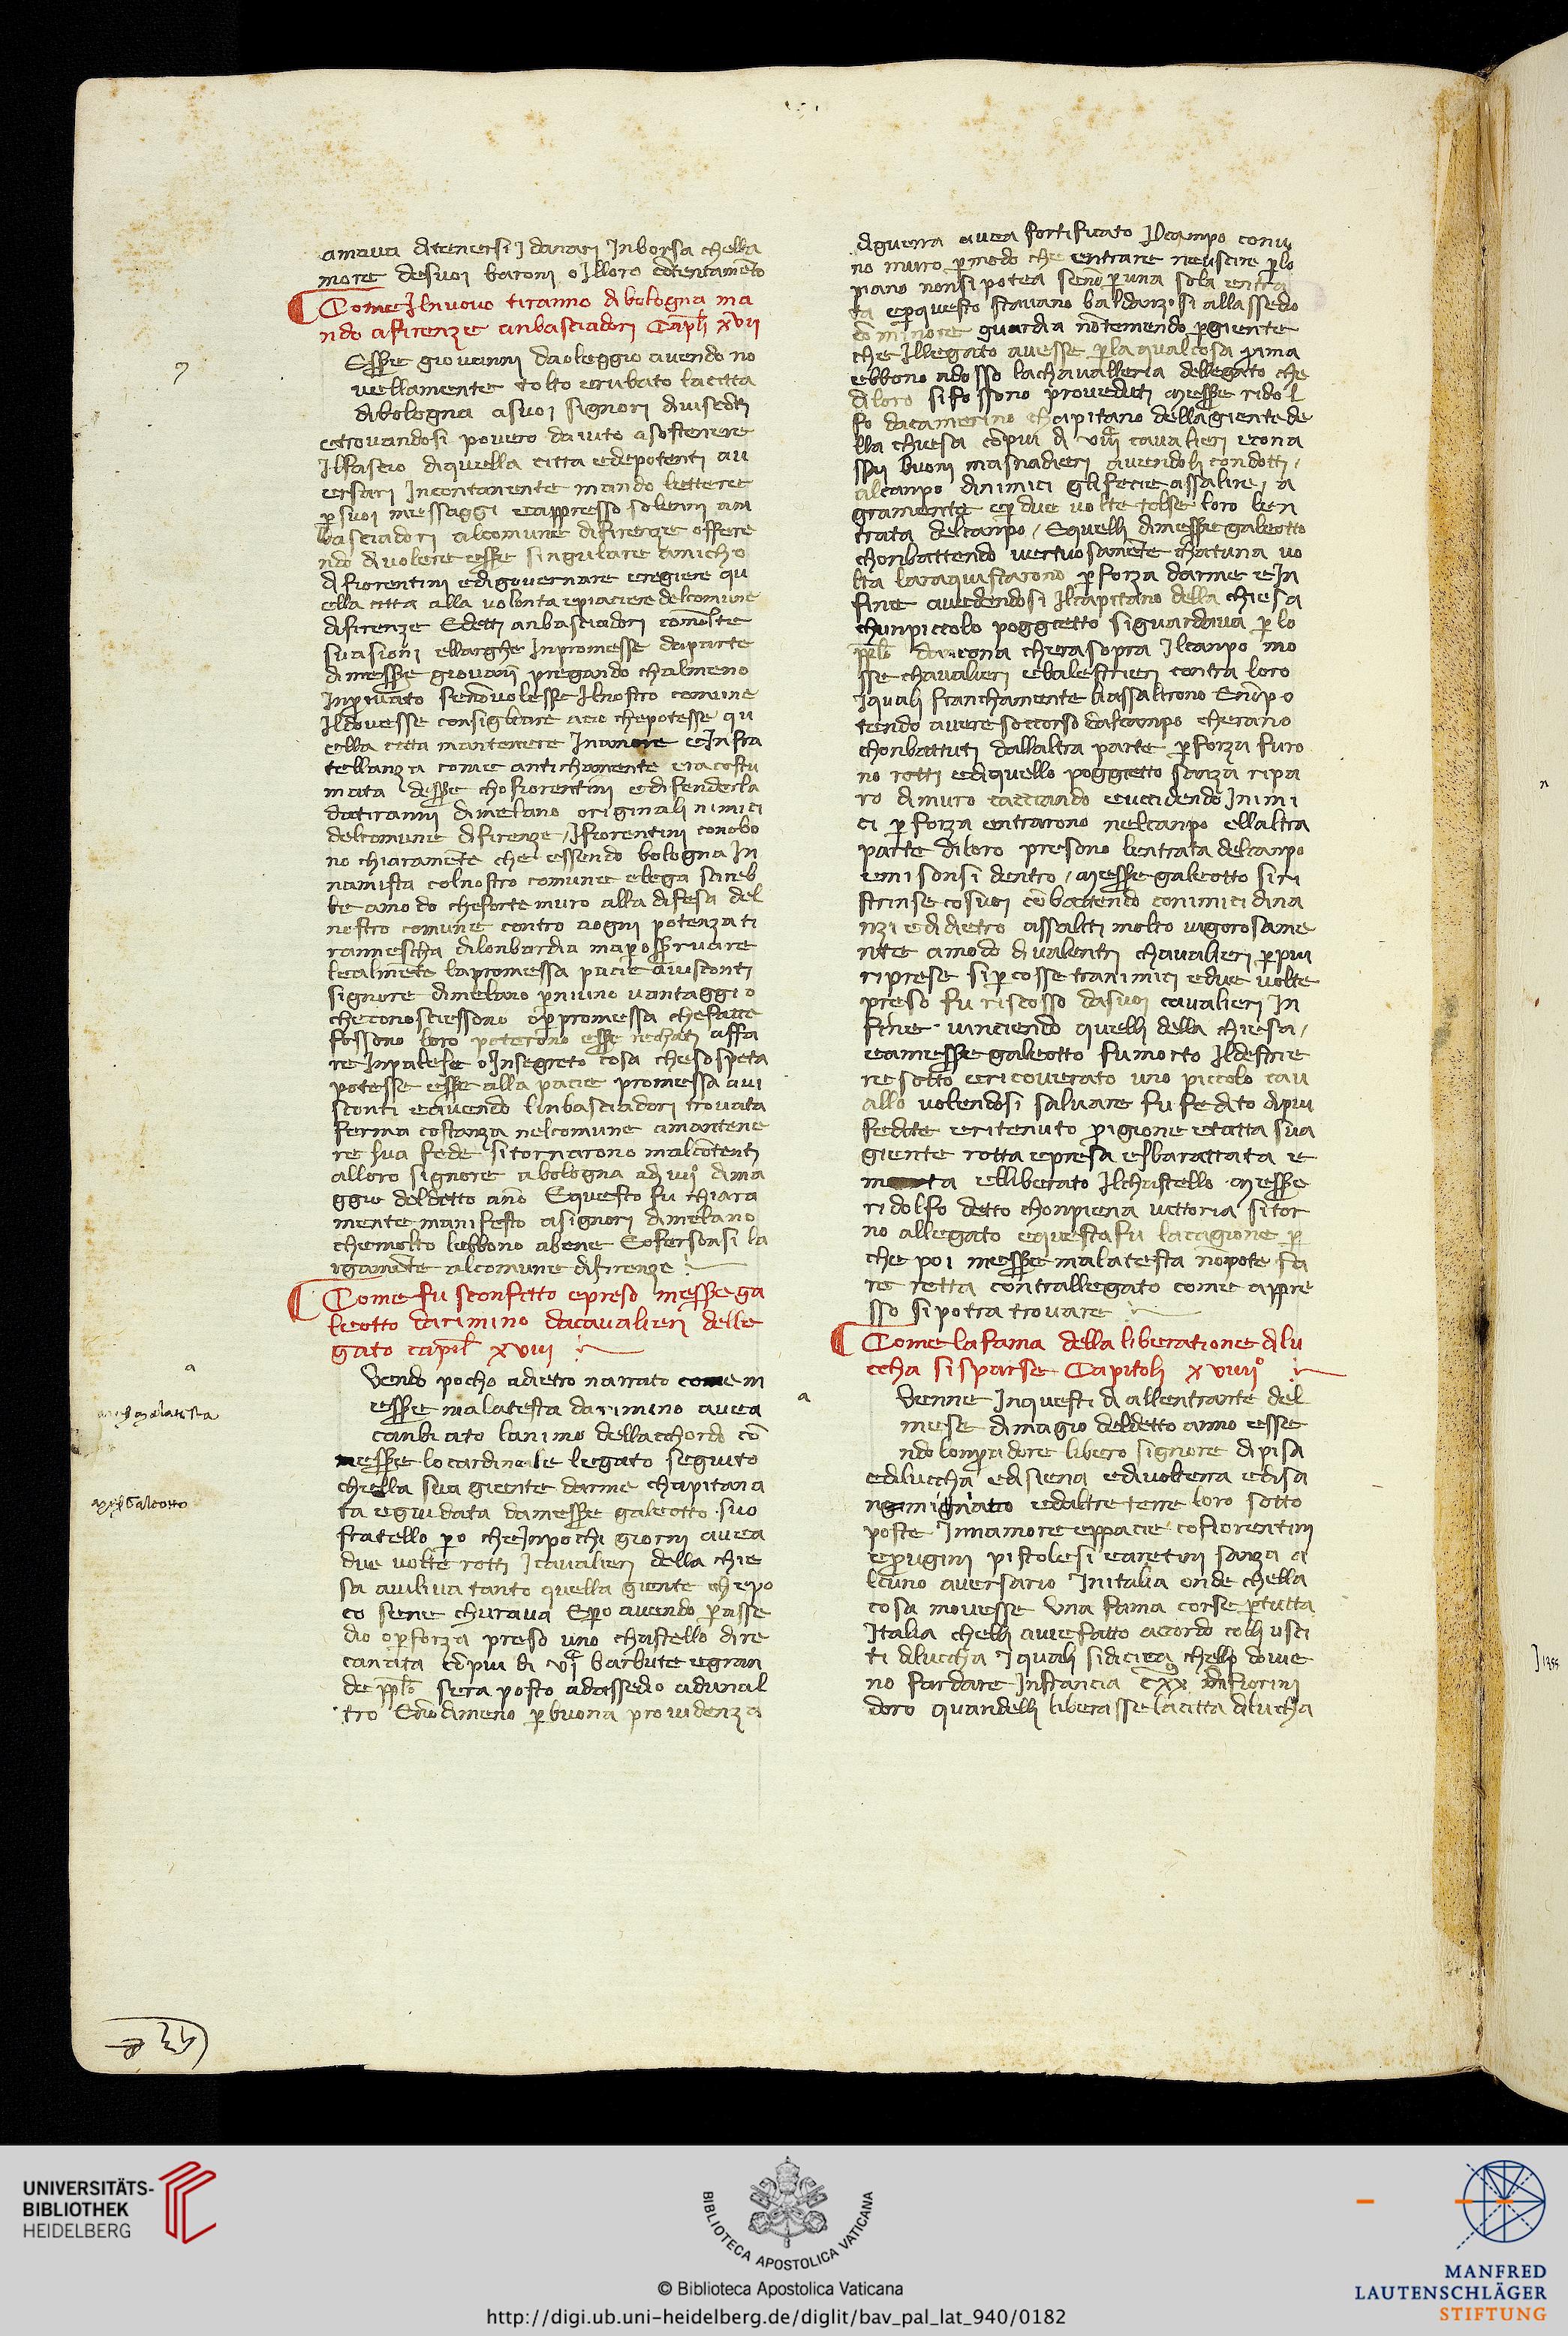 amava ditenersi J danari Jnborsa chella
more desuoi baroni o Jlloro cōtentamēto
Come Jlnuovo tiranno di bologna ma
ndo afirenze anbasciadori Capl̄i xvii
Esse giovanni daoleggio avendo no
vellamente tolto erubato lacitta
dibologna asuoi signori di visconti
etrovandosi povero daiuto asostenere
Jlfascio diquella citta edepotenti av
ersari Jncontanente mando lettere
p suoi messaggi eappresso solenni am
basciadori alcomune difirenze offere
ndo divolere esse singulare amicho
di fiorentini edigovernare eregiere qu
ella citta alla volonta epiaciere delcomune
difirenze Edetti anbasciadori
suasioni ellarghe Jnpromesse daparte
dimesse giovāni pregando chalmeno
Jnprivato senōvolesse Jlnostro comune
Jldovesse consigliare acio chepotesse qu
ella citta mantenere Jnamore eJnfra
tellanza come antichamente eracostu
mata desse chofiorentini edifenderla
datiranni dimelano originali nimici
delcomune difirenze / Jfiorentini conobo
no chiaramēte che essendo bologna Jn
namista colnostro comune elega sareb
be amodo cheforte muro alla difesa del
nostro comune contro aogni potenza ti
rannescha dilonbardia maposservare
lealmēte lapromessa pacie avisconti
signore dimelano pniuno vantaggio
checonosciessono op promessa chefatte
fossono loro poterono esse rechati affa
re Jnpalese o Jnsegreto cosa chesospeta
potesse esse alla pacie promessa avi
sconti eavendo linbasciadori trovata
ferma costanza nelcomune amantene
re sua fede sitornarono malcōtenti
alloro signore abologna adi vii° dima
ggio deldetto año Equesto fu chiara
mente manifesto asignori dimelano
chemolto lebbono abene Eofersonsi la
rgamēte alcomune difirenze
Come fu sconfitto epreso messe ga
leotto darimino dacavalieri delle
gato capl̄ xviii
Vendo pocho adietro narrato come m
esse malatesta darimino avea
canbiato lanimo dellacchordo cō
messe lo cardinale legato seguito
chella sua giente darme chapitana
ta eguidata damesse galeotto suo
fratello po che Jnpochi giorni avea
due volte rotti J cavalieri della chie
sa aviliva tanto quella giente chepo
co sene churava Epo avendo passe
dio opforza preso uno chastello dire
canata cōpiu di vi barbute egran
de ppl̄o sera posto adassedio adunal
tro Enōdimeno pbuona providenza
diguerra avea fortificato Jlcampo conu
no muro pmodo che entrare neuscire plo
piano nonsi potea senō puna sola entra
ta epquesto stavano baldanzosi allassedio
cō minore guardia nōtemendo pgiente
che Jllegato avesse plaqualcosa prima
ebbono adosso lachavalleria dellegato che
diloro sifossono proveduti Messe ridol
fo dacamerino chapitano dellagiente de
lla chiesa cōpiu di viii cavalieri econa
ssai buoni masnadieri avendoli condotti /
alcanpo dinimici glifecie assalire / a
gramente ep due volte tolse loro len
trata delcanpo / Equelli dimesse galeotto
chonbattendo vertuosamēte chatuna vo
lta laraquistarono p forza darme eJn
fine avedendosi Jlcapitano della chiesa
chunpiccolo poggietto siguardava plo
ppl̄o dancona cherasopra Jlcanpo mo
sse chavalieri ebalestrieri contra loro
Jquali franchamente liassaltrono Enōpo
tendo avere soccorso dalcanpo cherano
chonbattuti dallaltra parte p forza furo
no rotti ediquello poggietto sanza ripa
ro dimuro cacciando euccidendo Jnimi
ci p forza entrarono nelcanpo ellaltra
parte diloro presono lentrata delcanpo
emisonsi dentro / Messe galeotto siri
strinse cosuoi cōbattendo conimici dina
nzi edidietro assaliti molto vigorosame
nte amodo divalentri chavalieri ppiu
riprese sipcosse tranimici edue volte
preso fu riscosso dasuoi cavalieri Jn
fine vinciendo quelli della chiesa /
eamesse galeotto fumorto Jldestrie
re sotto ericoverato uno piccolo cav
allo volendosi salvare fu fedito dipiu
fedite eritenuto prigione etutta sua
giente rotta epresa esbarattata e
ta elliberato Jlchastello Messe
ridolfo detto chonpiena vittoria sitor
no allegato equestafu lacagione p
che poi messe malatesta nōpote fa
re retta contrallegato come appre
sso sipotra trovare
Come lafama della liberatione dilu
ccha sisparse Capitoli xviiii°
Venne Jnquesti di allentrante del
mese dimagio deldetto anno esse
ndo lonpadore libero signore dipisa
ediluccha edisiena edivolterra edisa
ngimignano edaltre terre loro sotto
poste Jnnamore eppacie cofiorentini
eprugini pistolesi earetini sanza a
lcuno aversario Jnitalia onde chella
cosa movesse una fama corse ptutta
Jtalia chelli aviefatto accordo colli usci
ti diluccha Jquali sidiciea chelli dovie
no fardare Jnfrancia cxx fiorini
doro quandelli liberasse lacitta dilucha
malatesta
Galeotto
1355
UNIVERSITÄTS-
BIBLIOTHEK
HEIDELBERG
BIBLIOTECA APOSTOLICA VATICANA
© Biblioteca Apostolica Vaticana
http://digi.ub.uni-heidelberg.de/diglit/bav_pal_lat_940/0182
MANFRED
LAUTENSCHLÄGER
STIFTUNG